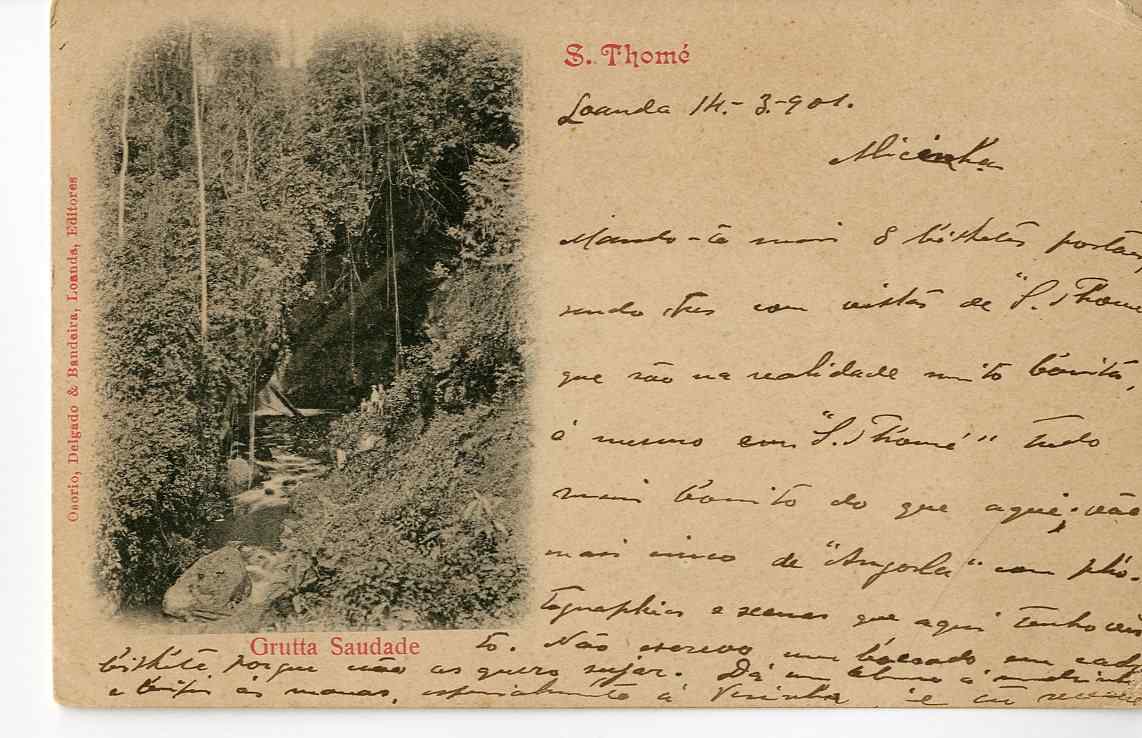 S. Thomé
Loanda 14-3-901.
Micinha
Mando-te mais 8 bilhetes postaes
sendo tres com vistas de "S. Thomé
que são na realidade muito bonitos,
é mesmo em "S. Thomé" tudo
mais bonito do que aqui; vão
mais cinco de "Angola" com pho-
tographias e scenas que aqui tenho vis
to. Não escrevo um bocado em cada
bilhete porque não os quero sujar. Dá um á madrinha
e beijos ás manas, especialmente á
Grutta Saudade
Osorio, Delgado & Bandeira, Loanda, Editores